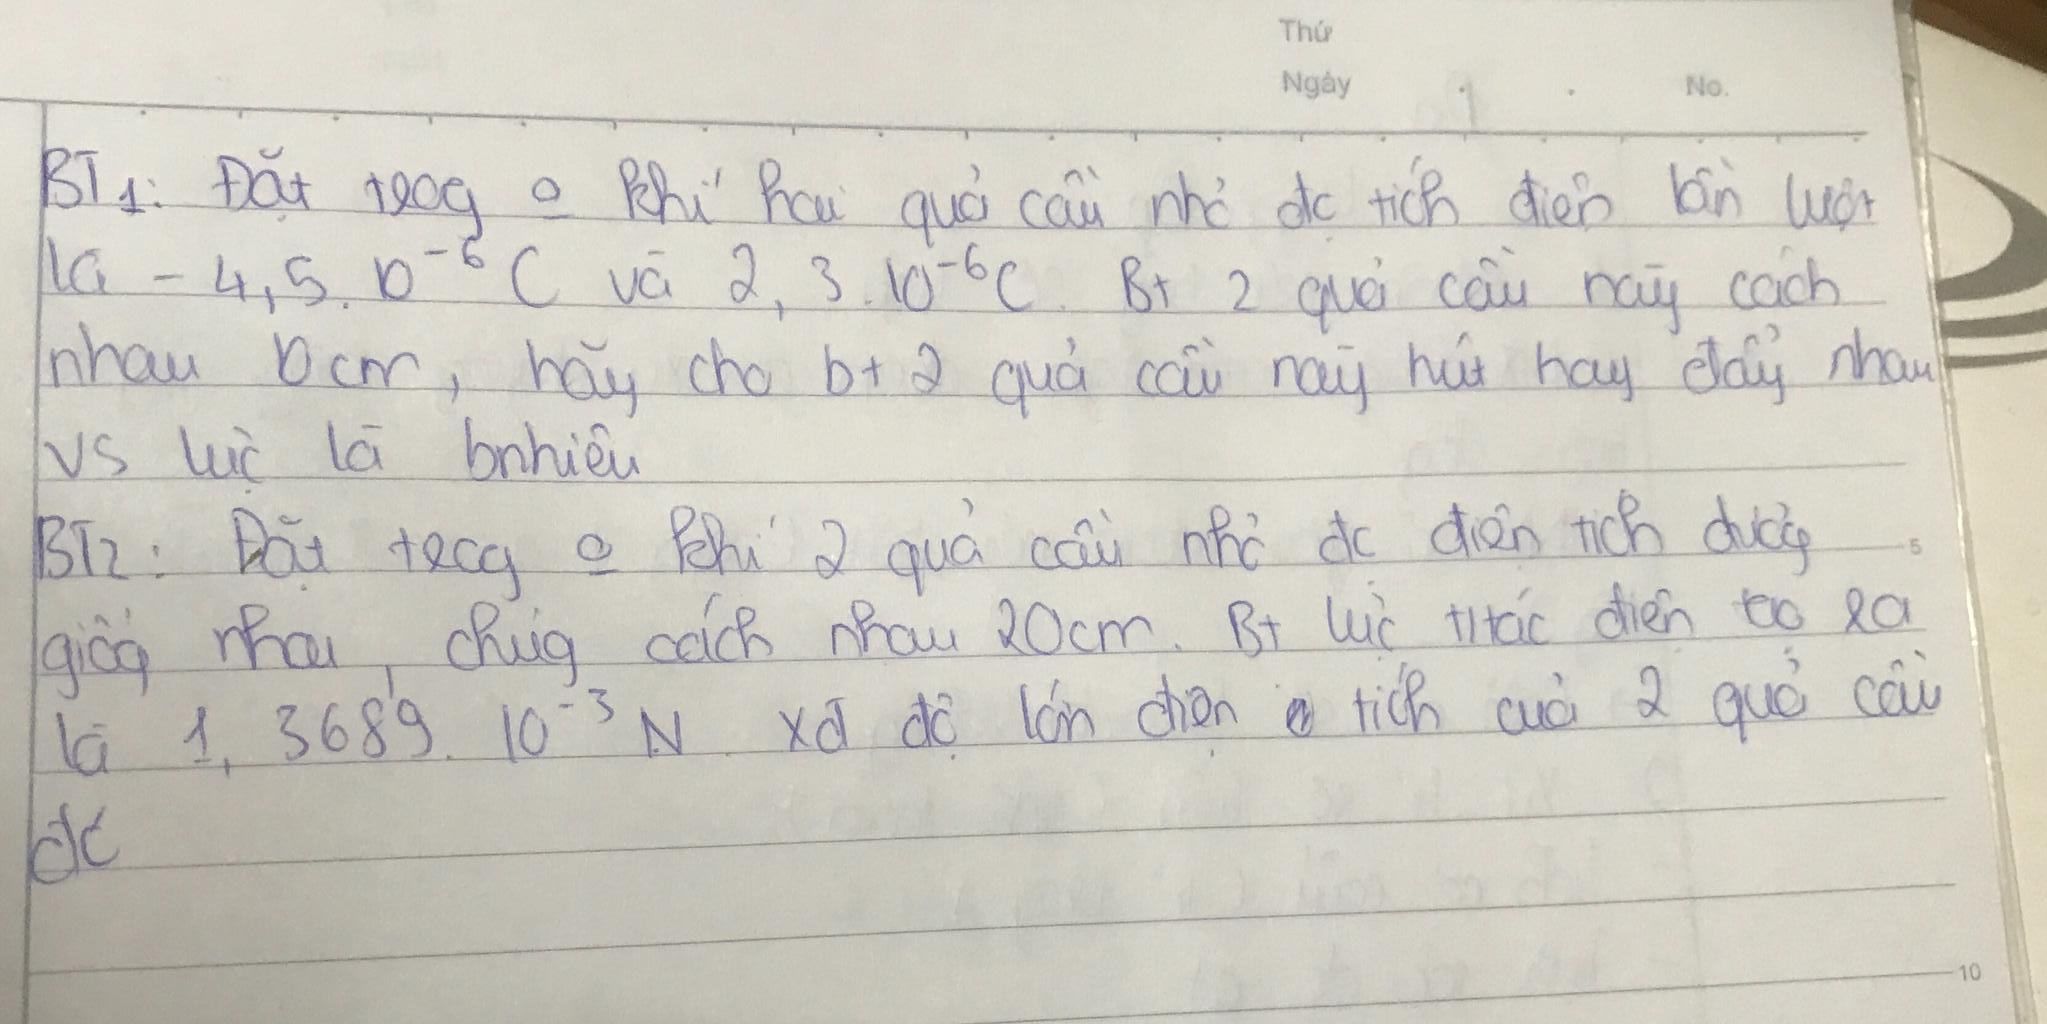 Thứ
Ngày No.
BT1: Đặt trog o khí hai quả cầu nhỏ đc tích điện lần lượt
là - 4,5. 10⁻⁶ C và 2,3.10⁻⁶C. Bt 2 quả cầu này cách
nhau 10cm, hãy cho bt 2 quả cầu này hút hay đẩy nhau
vs lực là bnhiêu
BT2: Đặt trog o khí 2 quả cầu nhỏ đc điện tích dươg
5
giốg nhau, chúg cách nhau 20cm. Bt lực t tác điện tạo ra
là 1,3689. 10⁻³ N. xđ độ lớn điện tích của 2 quả cầu
đc
10